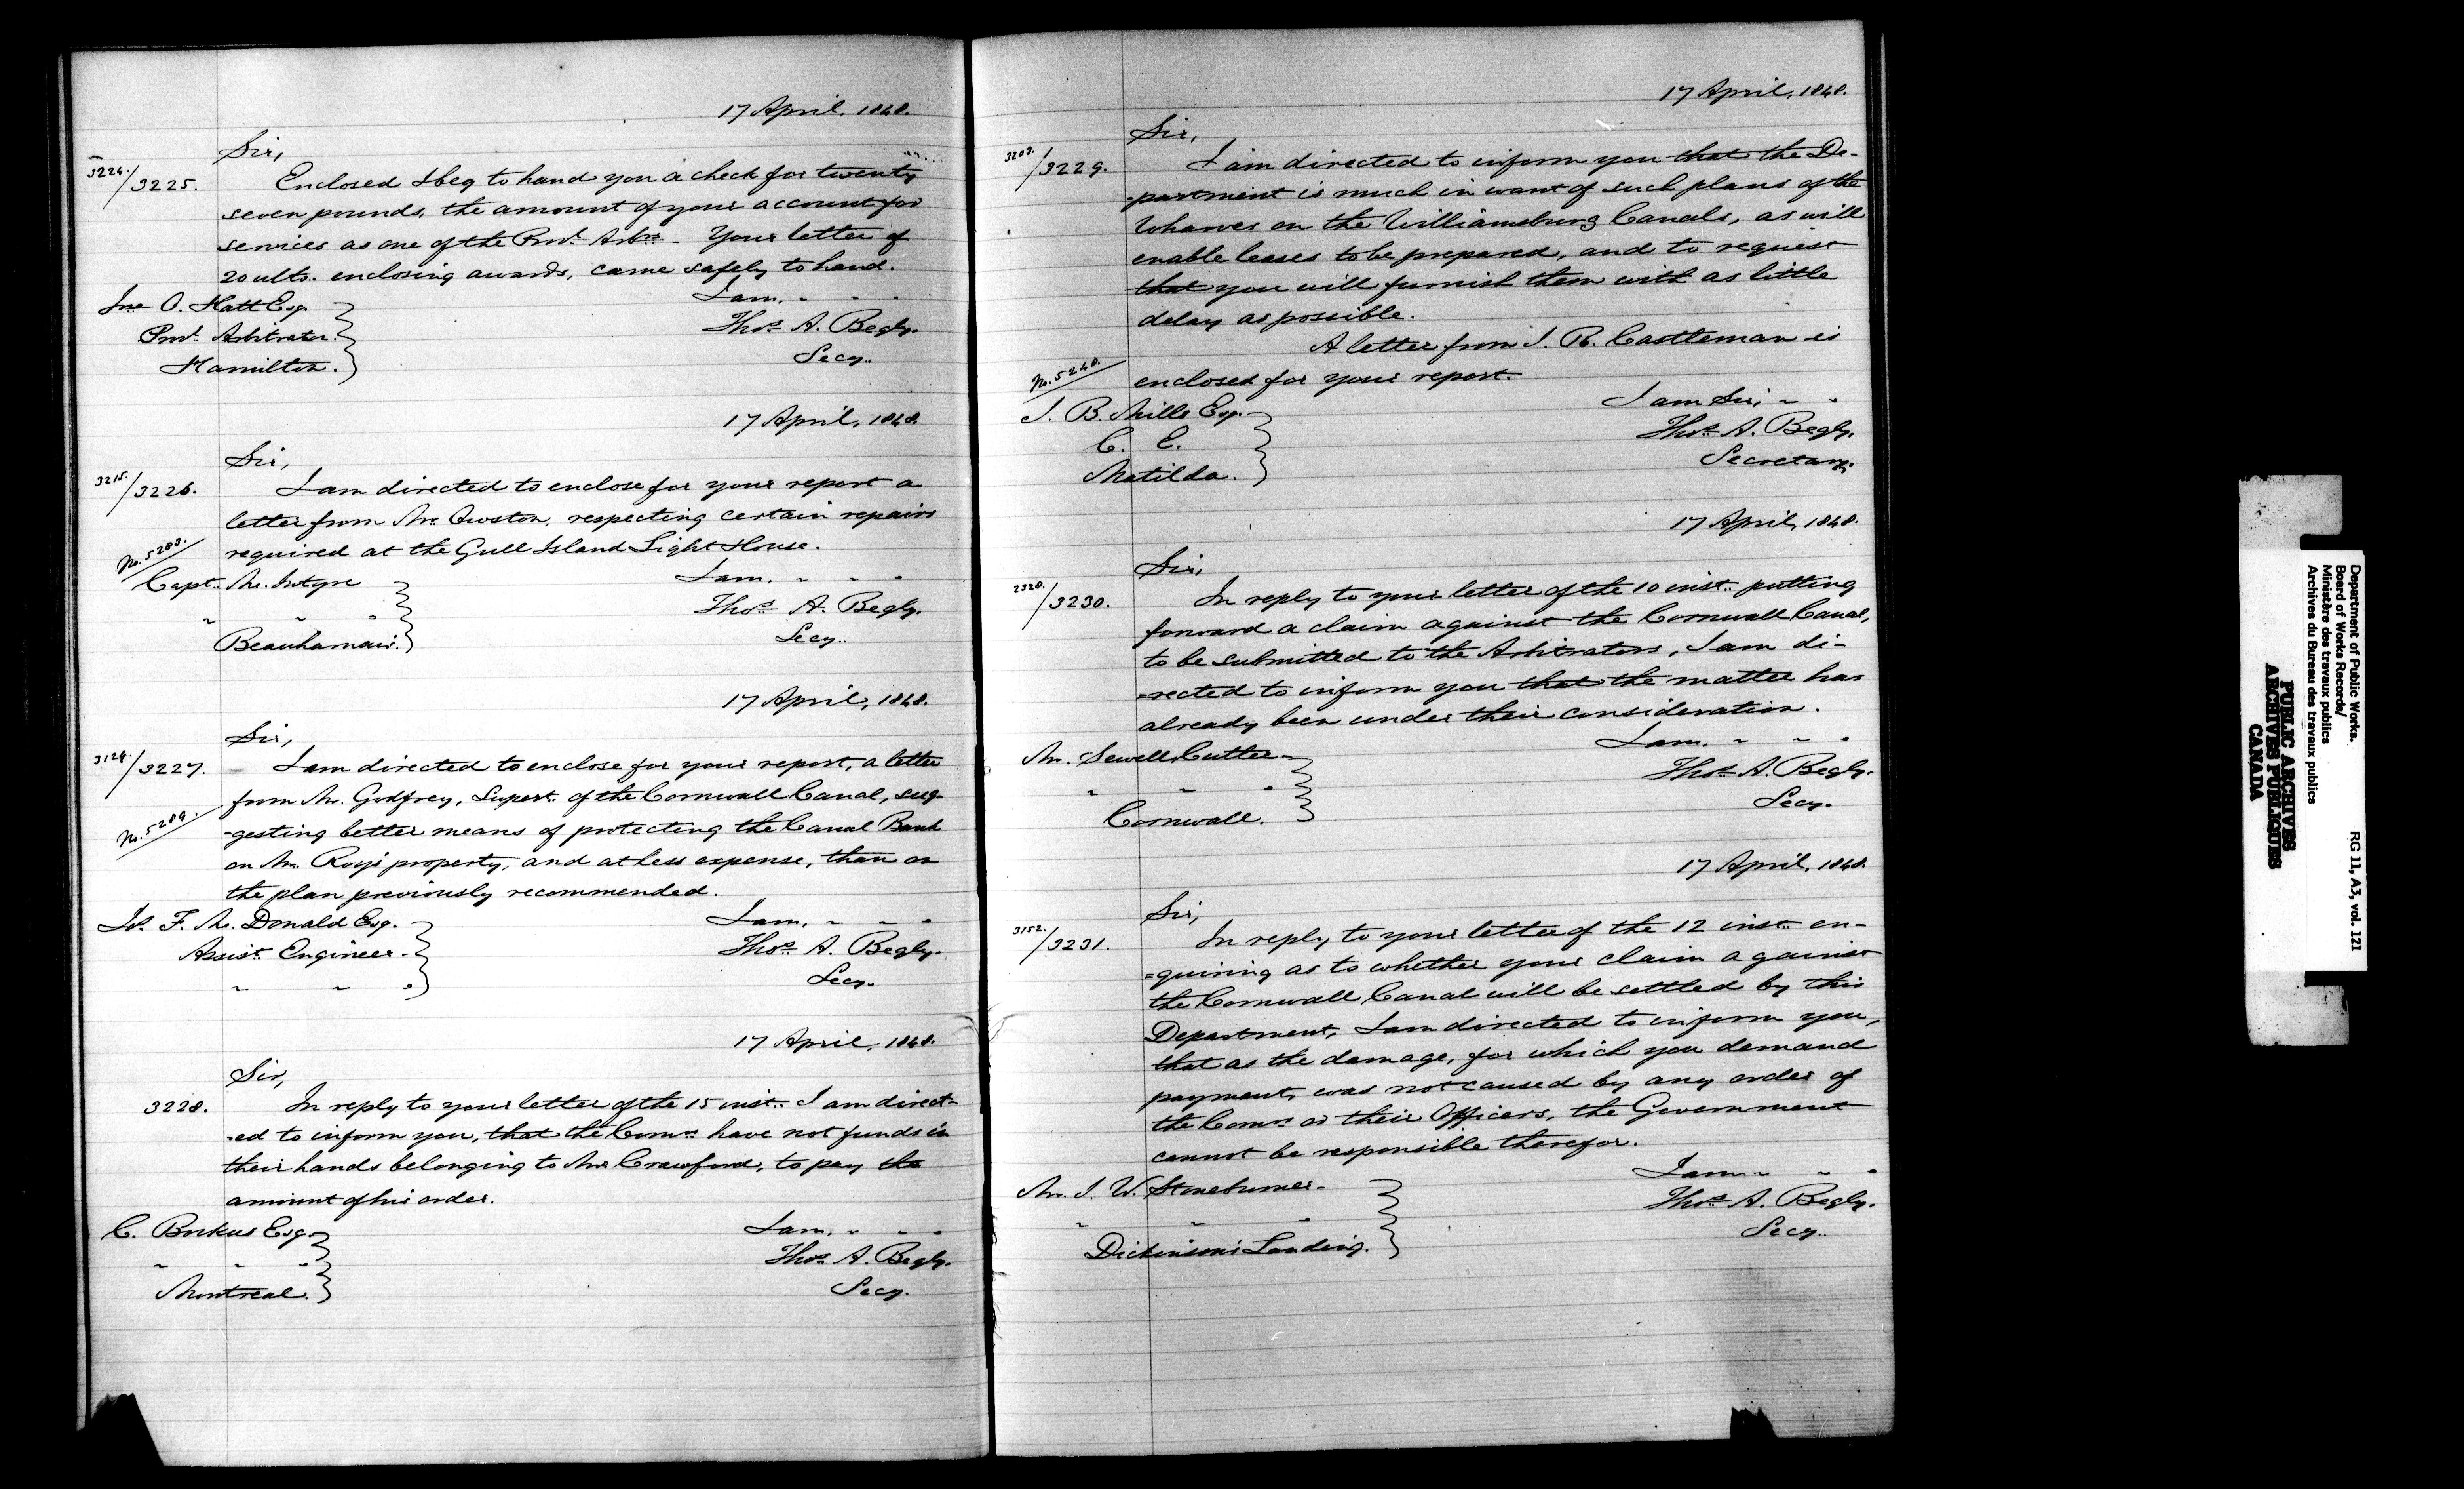 17 April, 1848.
Sir,
3224./3225.
Enclosed I beg to hand you a check for twenty
seven pounds, the amount of your account for
services as one of the Provl. Arbrs. Your letter of
20 ulto. enclosing awards, came safely to hand.
I am, " " "
Jno O. Hatt Esq.
Provl. Arbitrator.
Hamilton.
Thos. A. Begly.
Secy.
17 April, 1848.
Sir,
3215./3226.
I am directed to enclose for your report a
letter from Mr. Owston, respecting certain repairs
required at the Gull Island Light House.
No. 5203.
Capt. McIntyre
" " "
Beauharnais.
I am, " " "
Thos. A. Begly.
Secy.
17 April, 1848.
Sir,
3124./3227.
I am directed to enclose for your report, a letter
from Mr. Godfrey, Supert. of the Cornwall Canal, sug-
-gesting better means of protecting the Canal Bank
No. 5209.
on Mr. Roy's property, and at less expense, than on
the plan previously recommended.
F. Mc. Donald Esq.
Assist. Engineer.
" " "
I am, " " "
Thos. A. Begly.
Secy.
17 April, 1848.
Sir,
3228.
In reply to your letter of the 15 inst. I am direct-
-ed to inform you, that the Comrs. have not funds in
their hands belonging to Mr. Crawford, to pay the
amount of his order.
C. Bockus Esq.
" " "
Montreal.
I am, " " "
Thos. A. Begly.
Secy.
17 April, 1848.
Sir,
3203./3229.
I am directed to inform you that the De-
-partment is much in want of such plans of the
Wharves on the Williamsburg Canals, as will
enable leases to be prepared, and to request
that you will furnish them with as little
delay as possible.
A letter from J. R. Castleman is
No. 5240.
enclosed for your report.
J. B. Mills Esq.
C. E.
Matilda.
I am Sir, " "
Thos. A. Begly.
Secretary.
17 April, 1848.
Sir,
2320./3230.
In reply to your letter of the 10 inst. putting
forward a claim against the Cornwall Canal,
to be submitted to the Arbitrators, I am di-
-rected to inform you that the matter has
already been under their consideration.
Mr. Sewell Cutter
" " "
Cornwall.
I am, " " "
Thos. A. Begly.
Secy.
17 April, 1848.
Sir,
3152./3231.
In reply to your letter of the 12 inst. en-
=quiring as to whether your claim against
the Cornwall Canal will be settled by this
Department, I am directed to inform you,
that as the damage, for which you demand
payment, was not caused by any order of
the Comrs. or their Officers, the Government
cannot be responsible therefor.
Mr. J. W. Stoneburner
" " "
Dickinson's Landing.
I am " " "
Thos. A. Begly.
Secy.
Department of Public Works.
Board of Works Records/
Ministère des travaux publics
Archives du Bureau des travaux publics
RG 11, A3, vol. 121
PUBLIC ARCHIVES
ARCHIVES PUBLIQUES
CANADA